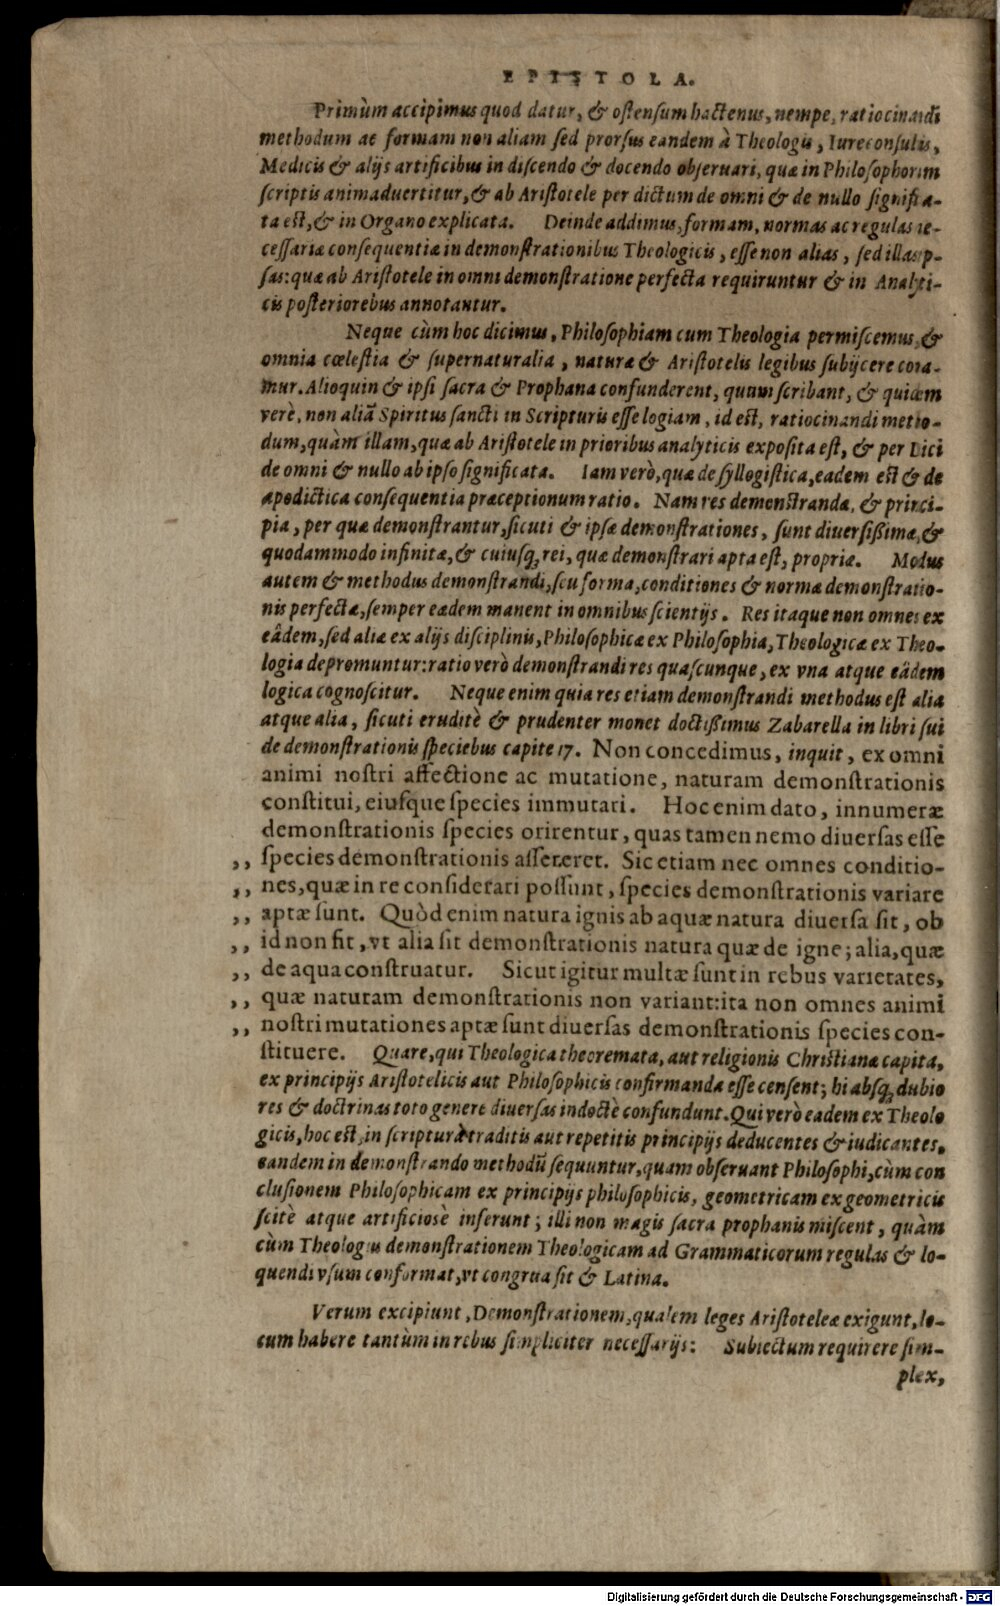 EPISTOLA.
Primùm accipimus quod datur, & ostensum hactenus, nempe, ratiocinandi
methodum ac formam non aliam sed prorsus eandem à Theologis, Iureconsulis,
Medicis & alijs artificibus in discendo & docendo obseruari, quæ in Philosophorum
scriptis animaduertitur, & ab Aristotele per dictum de omni & de nullo significa-
ta est, & in Organo explicata. Deinde addimus, formam, normas ac regulas ne-
cessariæ consequentiæ in demonstrationibus Theologicis, esse non alias, sed illas ip-
sas: quæ ab Aristotele in omni demonstratione perfecta requiruntur & in Analyti-
cis posteriorebus annotantur.
Neque cùm hoc dicimus, Philosophiam cum Theologia permiscemus, &
omnia cœlestia & supernaturalia, naturæ & Aristotelis legibus subijcere cona-
mur. Alioquin & ipsi sacra & Prophana confunderent, quum scribant, & quidem
verè, non aliã Spiritus sancti in Scripturis esse logiam, id est, ratiocinandi metho-
dum, quàm illam, quæ ab Aristotele in prioribus analyticis exposita est, & per Dici
de omni & nullo ab ipso significata. Iam verò, quæ de syllogistica, eadem est & de
apodictica consequentia præceptionum ratio. Nam res demonstrandæ, & princi-
pia, per quæ demonstrantur, sicuti & ipsæ demonstrationes, sunt diuersißimæ, &
quodammodo infinitæ, & cuiusq; rei, quæ demonstrari apta est, propriæ. Modus
autem & methodus demonstrandi, seu forma, conditiones & normæ demonstratio-
nis perfectæ, semper eædem manent in omnibus scientijs. Res itaque non omnes ex
eâdem, sed aliæ ex alijs disciplinis, Philosophicæ ex Philosophia, Theologicæ ex Theo-
logia depromuntur: ratio verò demonstrandi res quascunque, ex vna atque eâdem
logica cognoscitur. Neque enim quia res etiam demonstrandi methodus est alia
atque alia, sicuti eruditè & prudenter monet doctißimus Zabarella in libri sui
de demonstrationis speciebus capite 17. Non concedimus, inquit, ex omni
animi nostri affectione ac mutatione, naturam demonstrationis
constitui, eiusque species immutari. Hoc enim dato, innumeræ
demonstrationis species orirentur, quas tamen nemo diuersas esse
,, species demonstrationis assereret. Sic etiam nec omnes conditio-
,, nes, quæ in re considerari possunt, species demonstrationis variare
,, aptæ sunt. Quòd enim natura ignis ab aquæ natura diuersa sit, ob
,, id non fit, vt alia sit demonstrationis natura quæ de igne; alia, quæ
,, de aqua construatur. Sicut igitur multæ sunt in rebus varietates,
,, quæ naturam demonstrationis non variant: ita non omnes animi
,, nostri mutationes aptæ sunt diuersas demonstrationis species con-
stituere. Quare, qui Theologica theoremata, aut religionis Christianæ capita,
ex principijs Aristotelicis aut Philosophicis confirmanda esse censent; hi absq; dubio
res & doctrinas toto genere diuersas indoctè confundunt. Qui verò eadem ex Theolo
gicis, hoc est, in scriptura traditis aut repetitis principijs deducentes & iudicantes,
eandem in demonstrando methodũ sequuntur, quam obseruant Philosophi, cùm con
clusionem Philosophicam ex principijs philosophicis, geometricam ex geometricis
scitè atque artificiosè inferunt; illi non magis sacra prophanis miscent, quàm
cùm Theologus demonstrationem Theologicam ad Grammaticorum regulas & lo-
quendi vsum conformat, vt congrua sit & Latina.
Verum excipiunt, Demonstrationem, qualem leges Aristoteleæ exigunt, lo-
cum habere tantùm in rebus simpliciter necessarijs: Subiectum requirere sim-
plex,
Digitalisierung gefördert durch die Deutsche Forschungsgemeinschaft - DFG